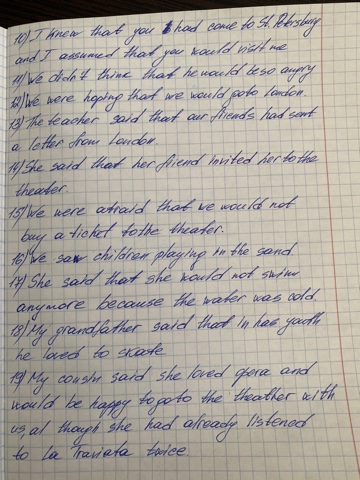 10) I knew that you had come to St. Petersburg
and I assumed that you would visit me
11) We didn't think that he would be so angry
12) We were hoping that we would go to London.
13) The teacher said that our friends had sent
a letter from London.
14) She said that her friend invited her to the
theater.
15) We were afraid that we would not
buy a ticket to the theater.
16) We saw children playing in the sand.
17) She said that she would not swim
anymore because the water was cold.
18) My grandfather said that in his youth
he loved to skate
19) My cousin said she loved opera and
would be happy to go to the theather with
us, al though she had already listened
to La Traviata twice.